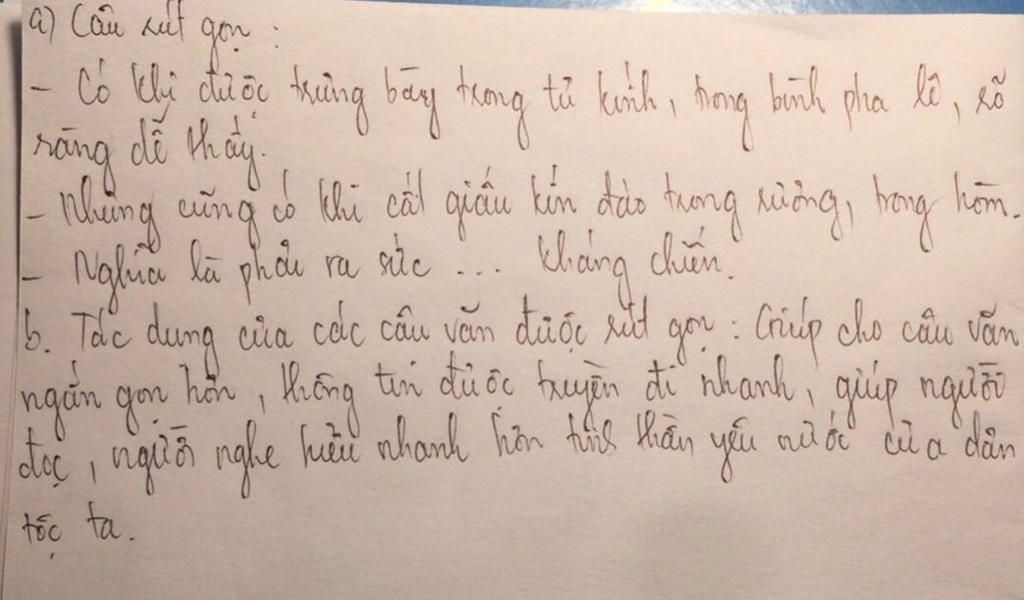 a) Câu rút gọn :
- Có khi được trưng bày trong tủ kính, trong bình pha lê, rõ
ràng dễ thấy.
- Nhưng cũng có khi cất giấu kín đáo trong rương, trong hòm.
- Nghĩa là phải ra sức ... kháng chiến.
b. Tác dụng của các câu văn được rút gọn : Giúp cho câu văn
ngắn gọn hơn, thông tin được truyền đi nhanh, giúp người
đọc, người nghe hiểu nhanh hơn tinh thần yêu nước của dân
tộc ta.